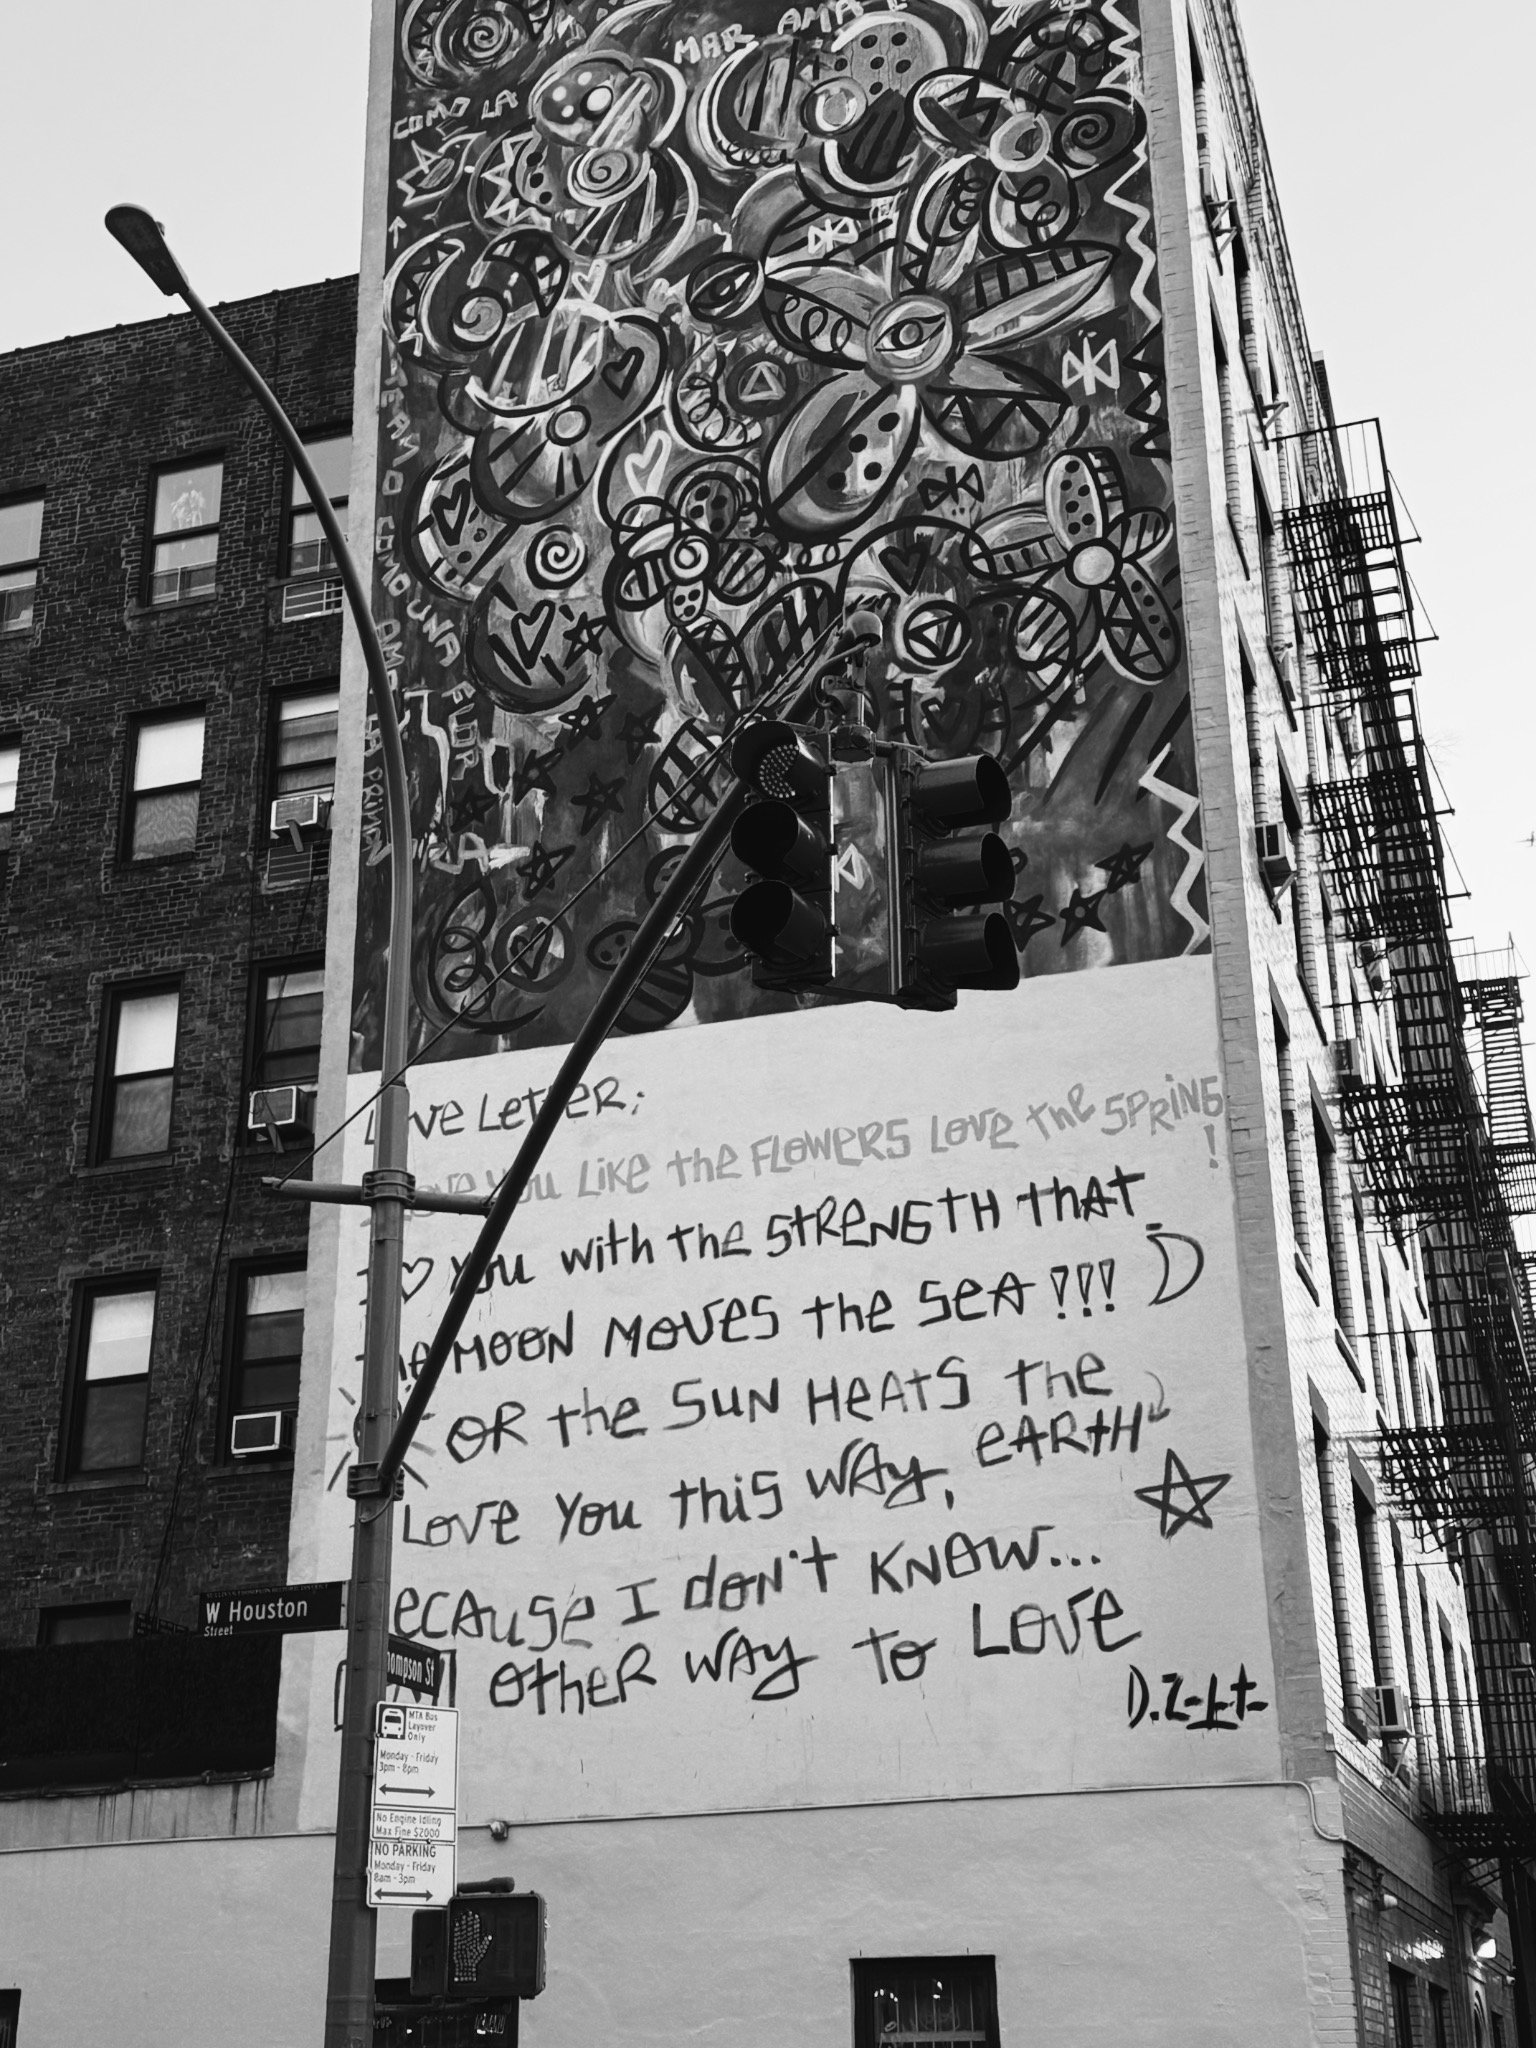 MAR AMA
COMO LA
TE AMO COMO UNA
FLOR
AMA
LA PRIMA
Love Letter;
Love you Like the FLOWERS Love the SPRING
!
I ♡ you with the STRENGTH that
the MOON MOVES the SEA !!!
OR the SUN HEATS the
EARTH
Love you this way,
ecause I don't know...
other way to Love
D.Z-Lt-
W Houston
Street
hompson St
MTA Bus
Layover
Only
Monday - Friday
3pm - 8pm
No Engine Idling
Max Fine $2000
NO PARKING
Monday - Friday
8am - 3pm